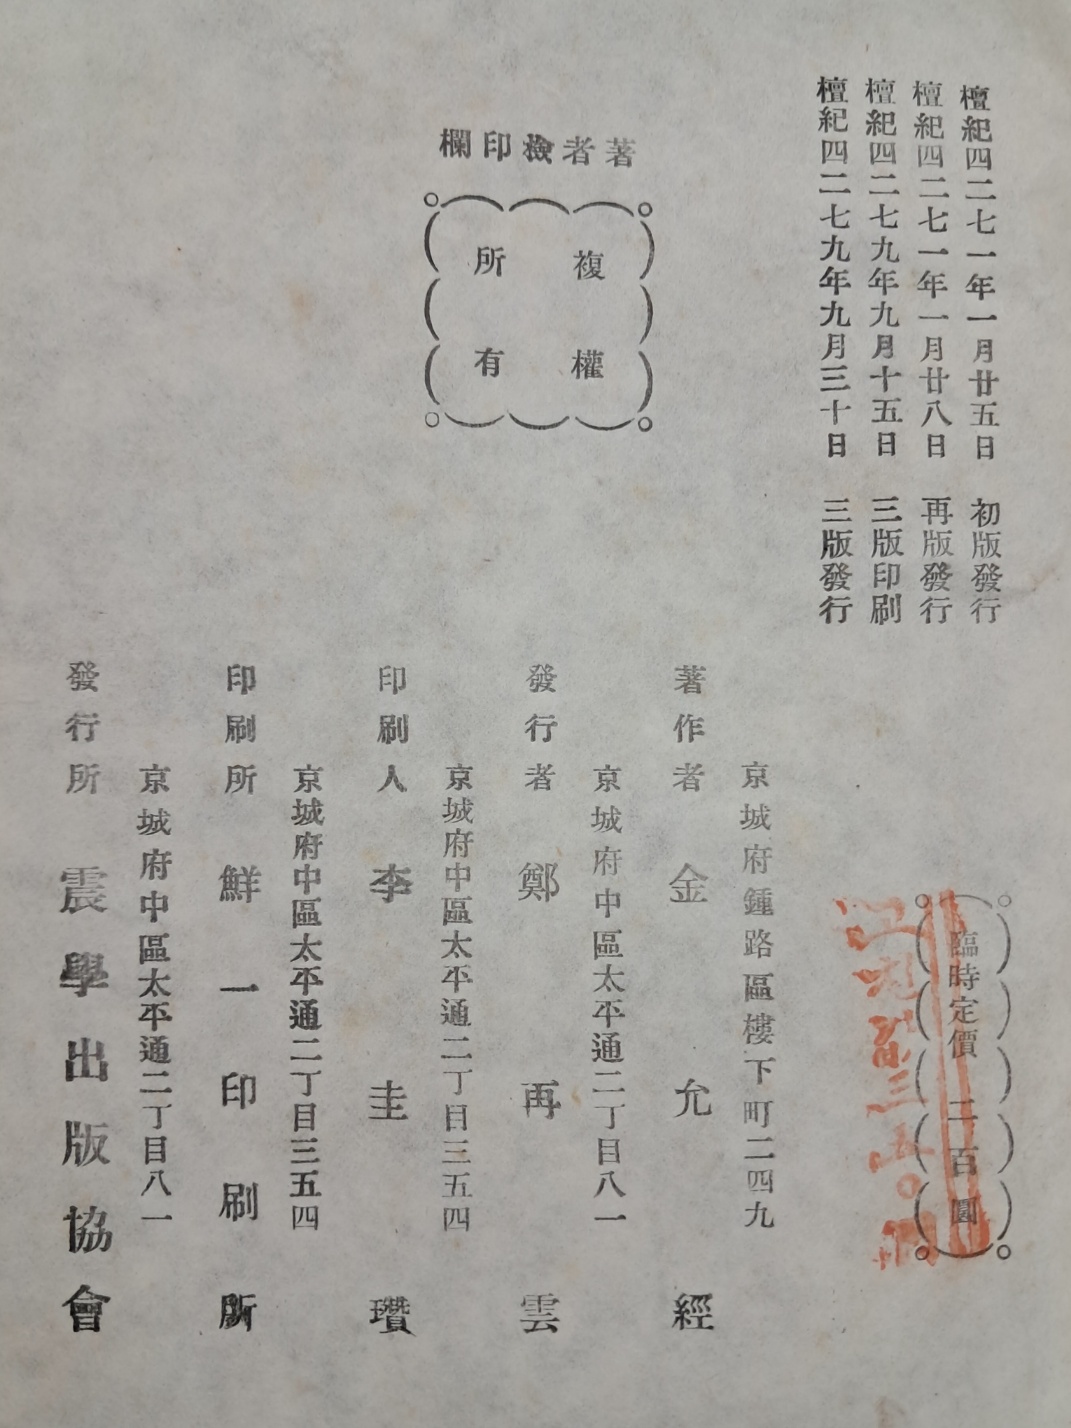 檀紀四二七一年一月廿五日 初版發行
檀紀四二七一年一月廿八日 再版發行
檀紀四二七九年九月十五日 三版印刷
檀紀四二七九年九月三十日 三版發行
著者檢印欄
複權
所有
臨時定價 二百圓
三五〇圓
京城府鍾路區樓下町二四九
著作者 金允經
京城府中區太平通二丁目八一
發行者 鄭再雲
京城府中區太平通二丁目三五四
印刷人 李圭瓚
京城府中區太平通二丁目三五四
印刷所 鮮一印刷所
京城府中區太平通二丁目八一
發行所 震學出版協會